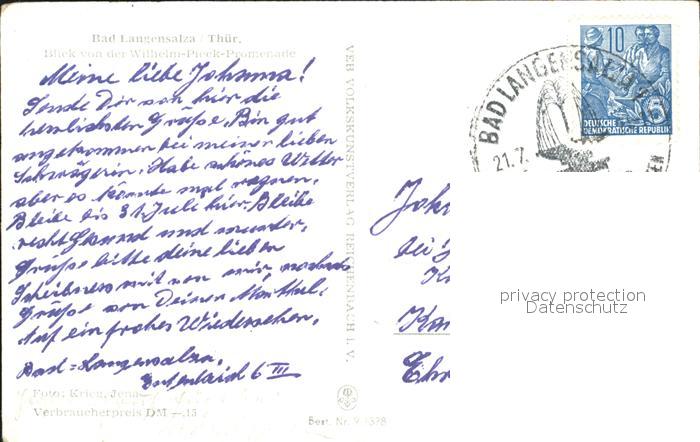 Bad Langensalza / Thür.
Blick von der Wilhelm-Pieck-Promenade
Meine liebe Johanna!
Sende Dir von hier die
herzlichsten Grüße. Bin gut
angekommen bei meiner lieben
Schwägerin. Habe schönes Wetter
aber es könnte mal regnen.
Bleibe bis 31. Juli hier. Bleibe
recht Gesund und munter.
Grüße bitte deine lieben
mit von mir, nochmals
Grüße von Deiner
Auf ein frohes Wiedersehen.
Bad-Langensalza,
6 III
Foto: Krien, Jena
Verbraucherpreis DM —,15
VEB VOLKSKUNSTVERLAG REICHENBACH I. V.
Best. Nr. 9 1378
BAD LANGENSALZA
21. 7.
10
5
DEUTSCHE
DEMOKRATISCHE REPUBLIK
Joh
bei
privacy protection
Datenschutz